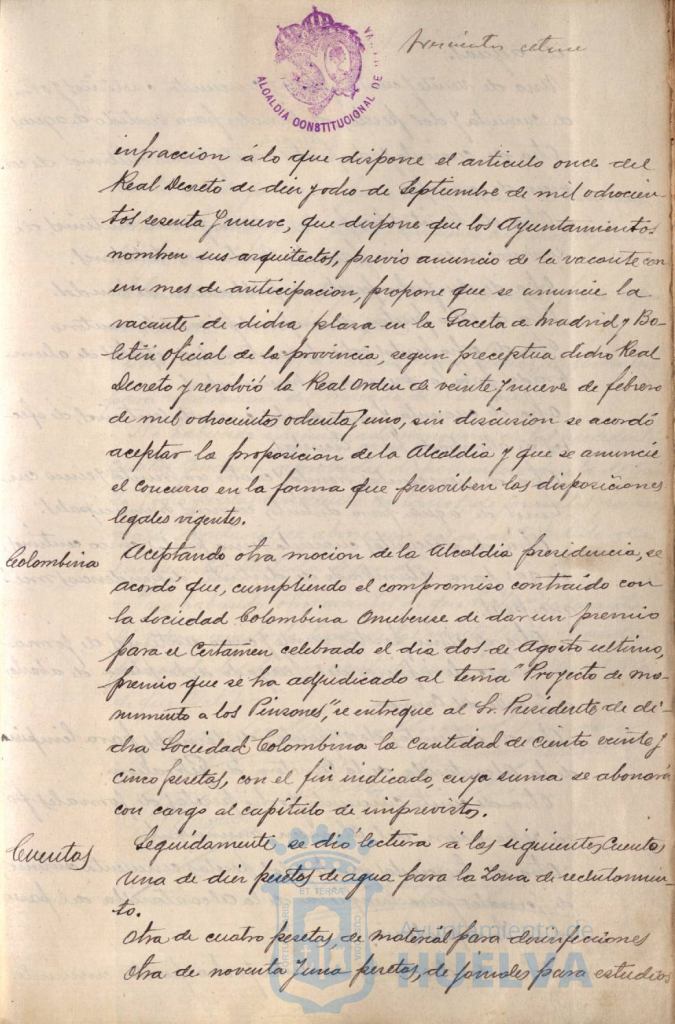 trescientos catorce
ALCALDIA CONSTITUCIONAL DE
infraccion á lo que dispone el articulo once del
Real Decreto de diez y ocho de Septiembre de mil ochocien-
tos sesenta y nueve, que dispone que los Ayuntamientos
nombren sus arquitectos, previo anuncio de la vacante con
un mes de anticipacion, propone que se anuncie la
vacante de dicha plaza en la Gaceta de Madrid y Bo-
letin oficial de la provincia, segun preceptua dicho Real
Decreto y resolvió la Real orden de veinte y nueve de febrero
de mil ochocientos ochenta y uno, sin discusion se acordó
aceptar la proposicion de la Alcaldia y que se anuncie
el concurso en la forma que prescriben las disposiciones
legales vigentes.
Colombina
Aceptando otra mocion de la Alcaldia presidencia, se
acordó que, cumpliendo el compromiso contraido con
la Sociedad Colombina Onubense de dar un premio
para el Certamen celebrado el dia dos de Agosto ultimo,
premio que se ha adjudicado al tema "Proyecto de mo-
numento a los Pinzones," se entregue al Sr. Presidente de di-
cha Sociedad Colombina la cantidad de ciento veinte y
cinco pesetas, con el fin indicado, cuya suma se abonará
con cargo al capitulo de imprevistos.
Cuentas
Seguidamente se dió lectura á las siguientes Cuentas
una de diez pesetas de agua para la Zona de reclutamien-
to.
Otra de cuatro pesetas, de material para desinfecciones
Otra de noventa y una pesetas, de jornales para estudios
Ayuntamiento de
HUELVA